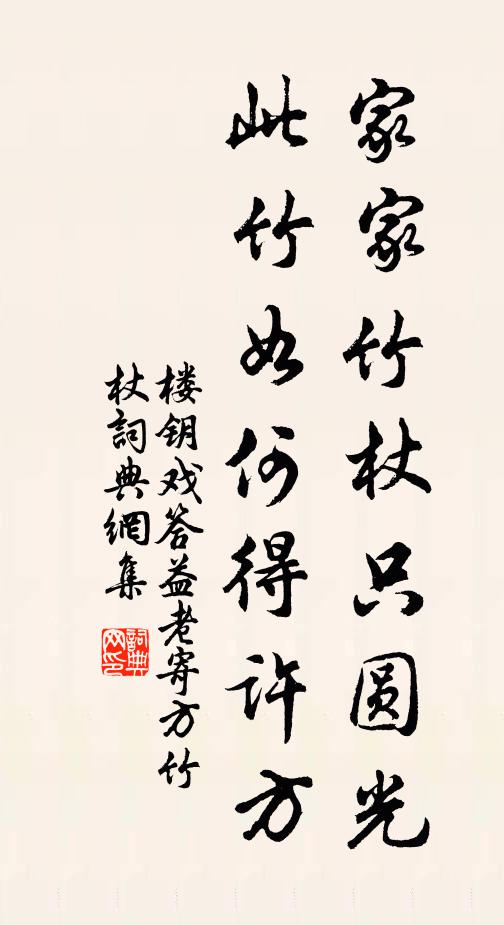 家家竹杖只圆光
此竹如何得许方
楼钥戏答益老寄方竹
杖詞典網集
詞典
网印